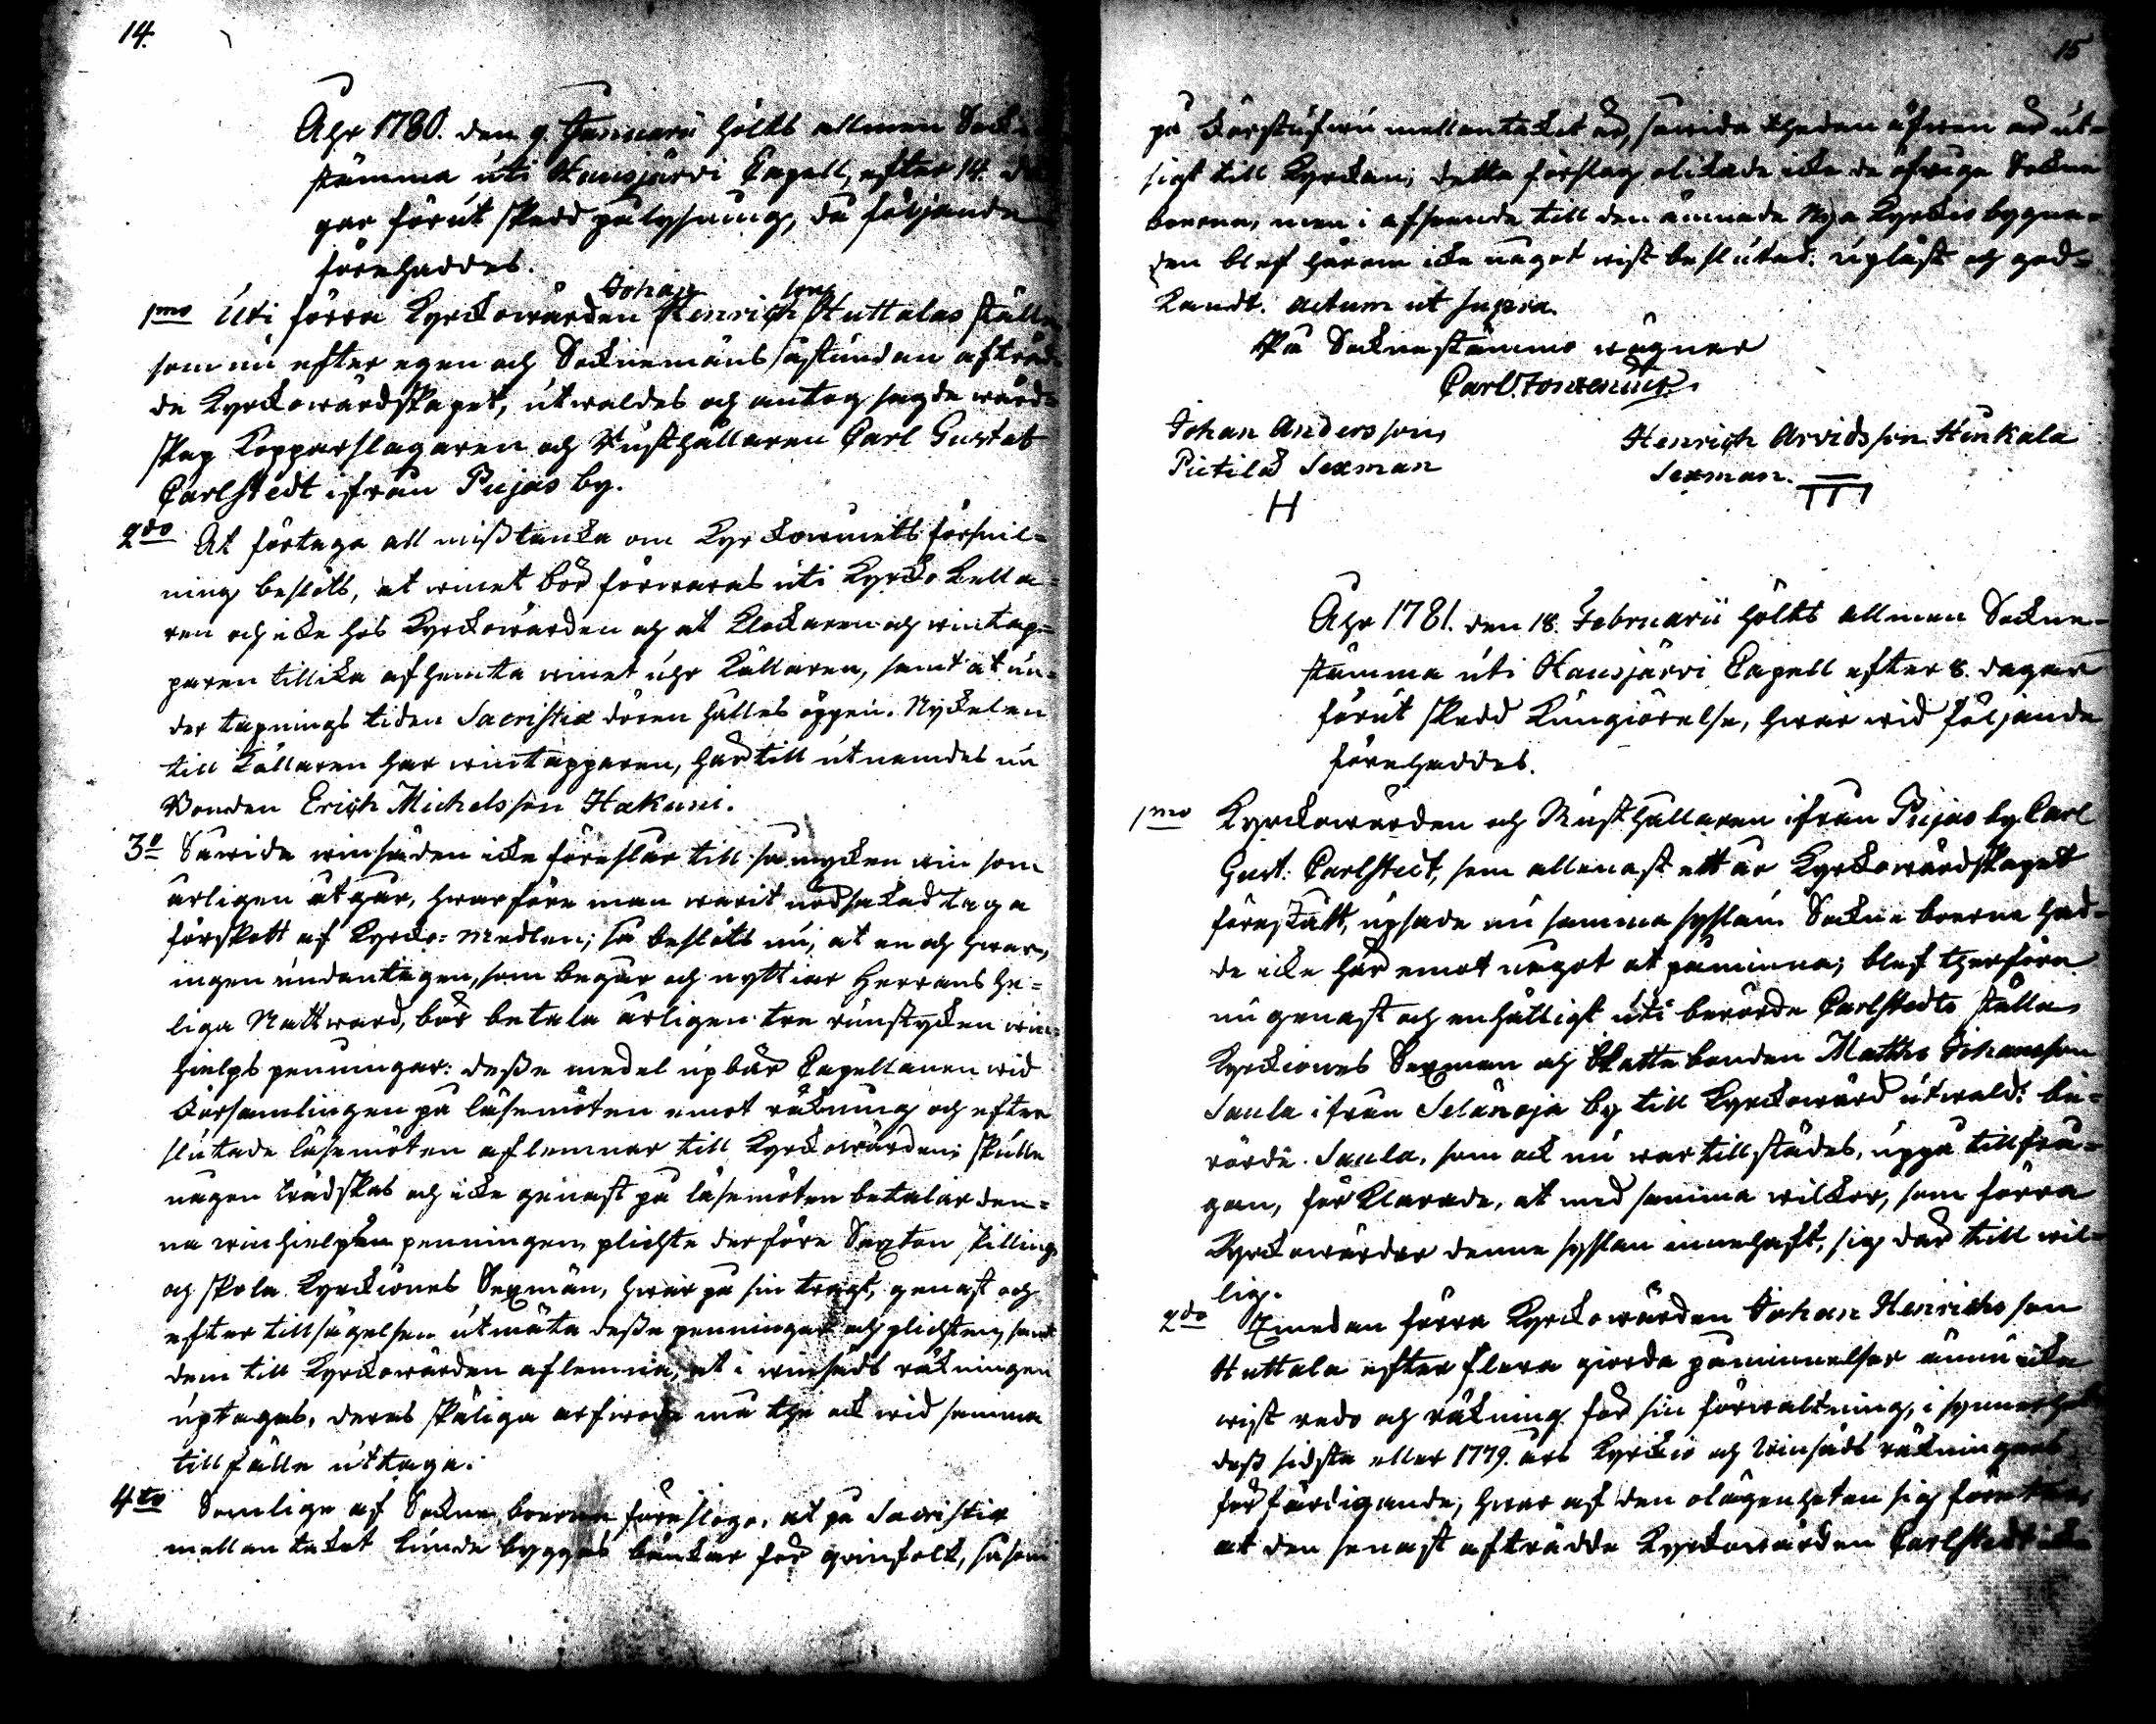 14.
Åhr 1780. den 9. Januarii hölts allmen Sockne
stämma uti Hausjärvi Capell, efter 14. da
gar förut skedd pålysning, då följande
förehaddes.
1mo Uti förra Kyrckowärden Johan Henrichson Huttalas ställe
som nu efter egen och Socknemäns åstundan afträd-
de Kyrckowärdskapet, utwaldes och antog sagde wärd-
skap Kopparslagaren och Rusthållaren Carl Gustaf
Carlstedt ifrån Pujas by.
2do At förtaga all misstanka om Kyrckowinets förspil-
ning beslöts, at winet bör förwaras uti Kyrcko kella-
ren och icke hos Kyrckowärden och at Klockaren och wintap-
paren tillika afhemta winet uhr Källaren, samt at un-
der tapnings tiden Sacristiæ dören hålles öppen. Nyckelen
till Källaren har wintapparen, härtill utnemdes nu
Bonden Erich Michelsson Hakuni.
3o Såwida winsäden icke föreslår till så mycken win som
årligen åtgår, hwarföre man warit nödsakad taga
förskott af Kyrcko-Medlen; så beslöts nu, at en och hwar,
ingen undantagen, som begår och nyttiar Herrans He-
liga Nattward, bör betala årligen tre runstycken win-
hielps penningar: desse medel upbär Capellanen wid
Församlingen på läsemöten emot räkning och efter
slutade läsemöten aflemnar till Kyrckowärden; skulle
någon tredskas och icke genast på läsemöten betalar den-
na winhielps penningen, plichte derföre Sexton skilling
och skola Kyrckiones Sexmän, hwar på sin tragt, genast och
efter tillsägelsen utmäta desse penningar och plichten, samt
dem till Kyrckowärden aflemna, at i winsäds räkningen
uptagas, deras skäliga arfwode må the ock wid samma
tillfälle uttaga.
4to Somlige af Sockne boerne föreslogo, at på Sacristiæ
mellantaket kunde byggas bänkar för qvinfolk, såsom
15
på Förstufwu mellantaket är, såwida theden äfwen är ut-
sigt till Kyrckan; detta förslag olikade icke de öfrige Sockne
boerna, men i afseende till den ämnade Nya Kyrckio bygna-
den blef härom icke något wist beslutad. upläst och god-
kändt. actum ut supra.
På Socknestämmo wägnar
Carl Fonsenius.
Johan Andersson
Pietilä Sexman
H
Henrich Arvidsson Hunkala
Sexman.
Åhr 1781. den 18. Februarii hölts allmen Sockne-
stämma uti Hausjärvi Capell efter 8. dagar
förut skedd Kungiörelse, hwar wid följande
förehaddes.
1mo Kyrckowärden och Rusthållaren ifrån Pujas by Carl
Gust: Carlstedt, som allenast ett år Kyrckowärdskapet
förestått, upsade nu samma syssla. Sockne boerne had-
de icke här emot något at påminna; blef therföre
nu genast och enhälligt uti berörde Carlstedts ställe
Kyrckiones Sexman och Skattebonden Matths Johansson
Saula ifrån Selänoja by till Kyrckowärd utwald: be-
rörde Saula, som ock nu war tillstädes, uppå tillfrå-
gan, förklarade, at med samma wilkor, som förra
Kyrckowärdar denne sysslan innehaft, sig där till wil-
lig.
2do Emedan förra Kyrckowärden Johan Henrichsson
Huttala efter flera giorda påminnelser ännu icke
wist redo och räkning för sin förwaltning, i synnerhet
dess sidsta eller 1779. års Kyrckio och Winsäds räkningars
förfärdigande, hwar af den olägenheten sig företer
at den senast afträdde Kyrckowärden Carlstedt icke